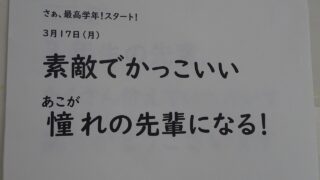 さぁ、最高学年！スタート！
3月17日（月）
素敵でかっこいい
あこが
憧れの先輩になる！